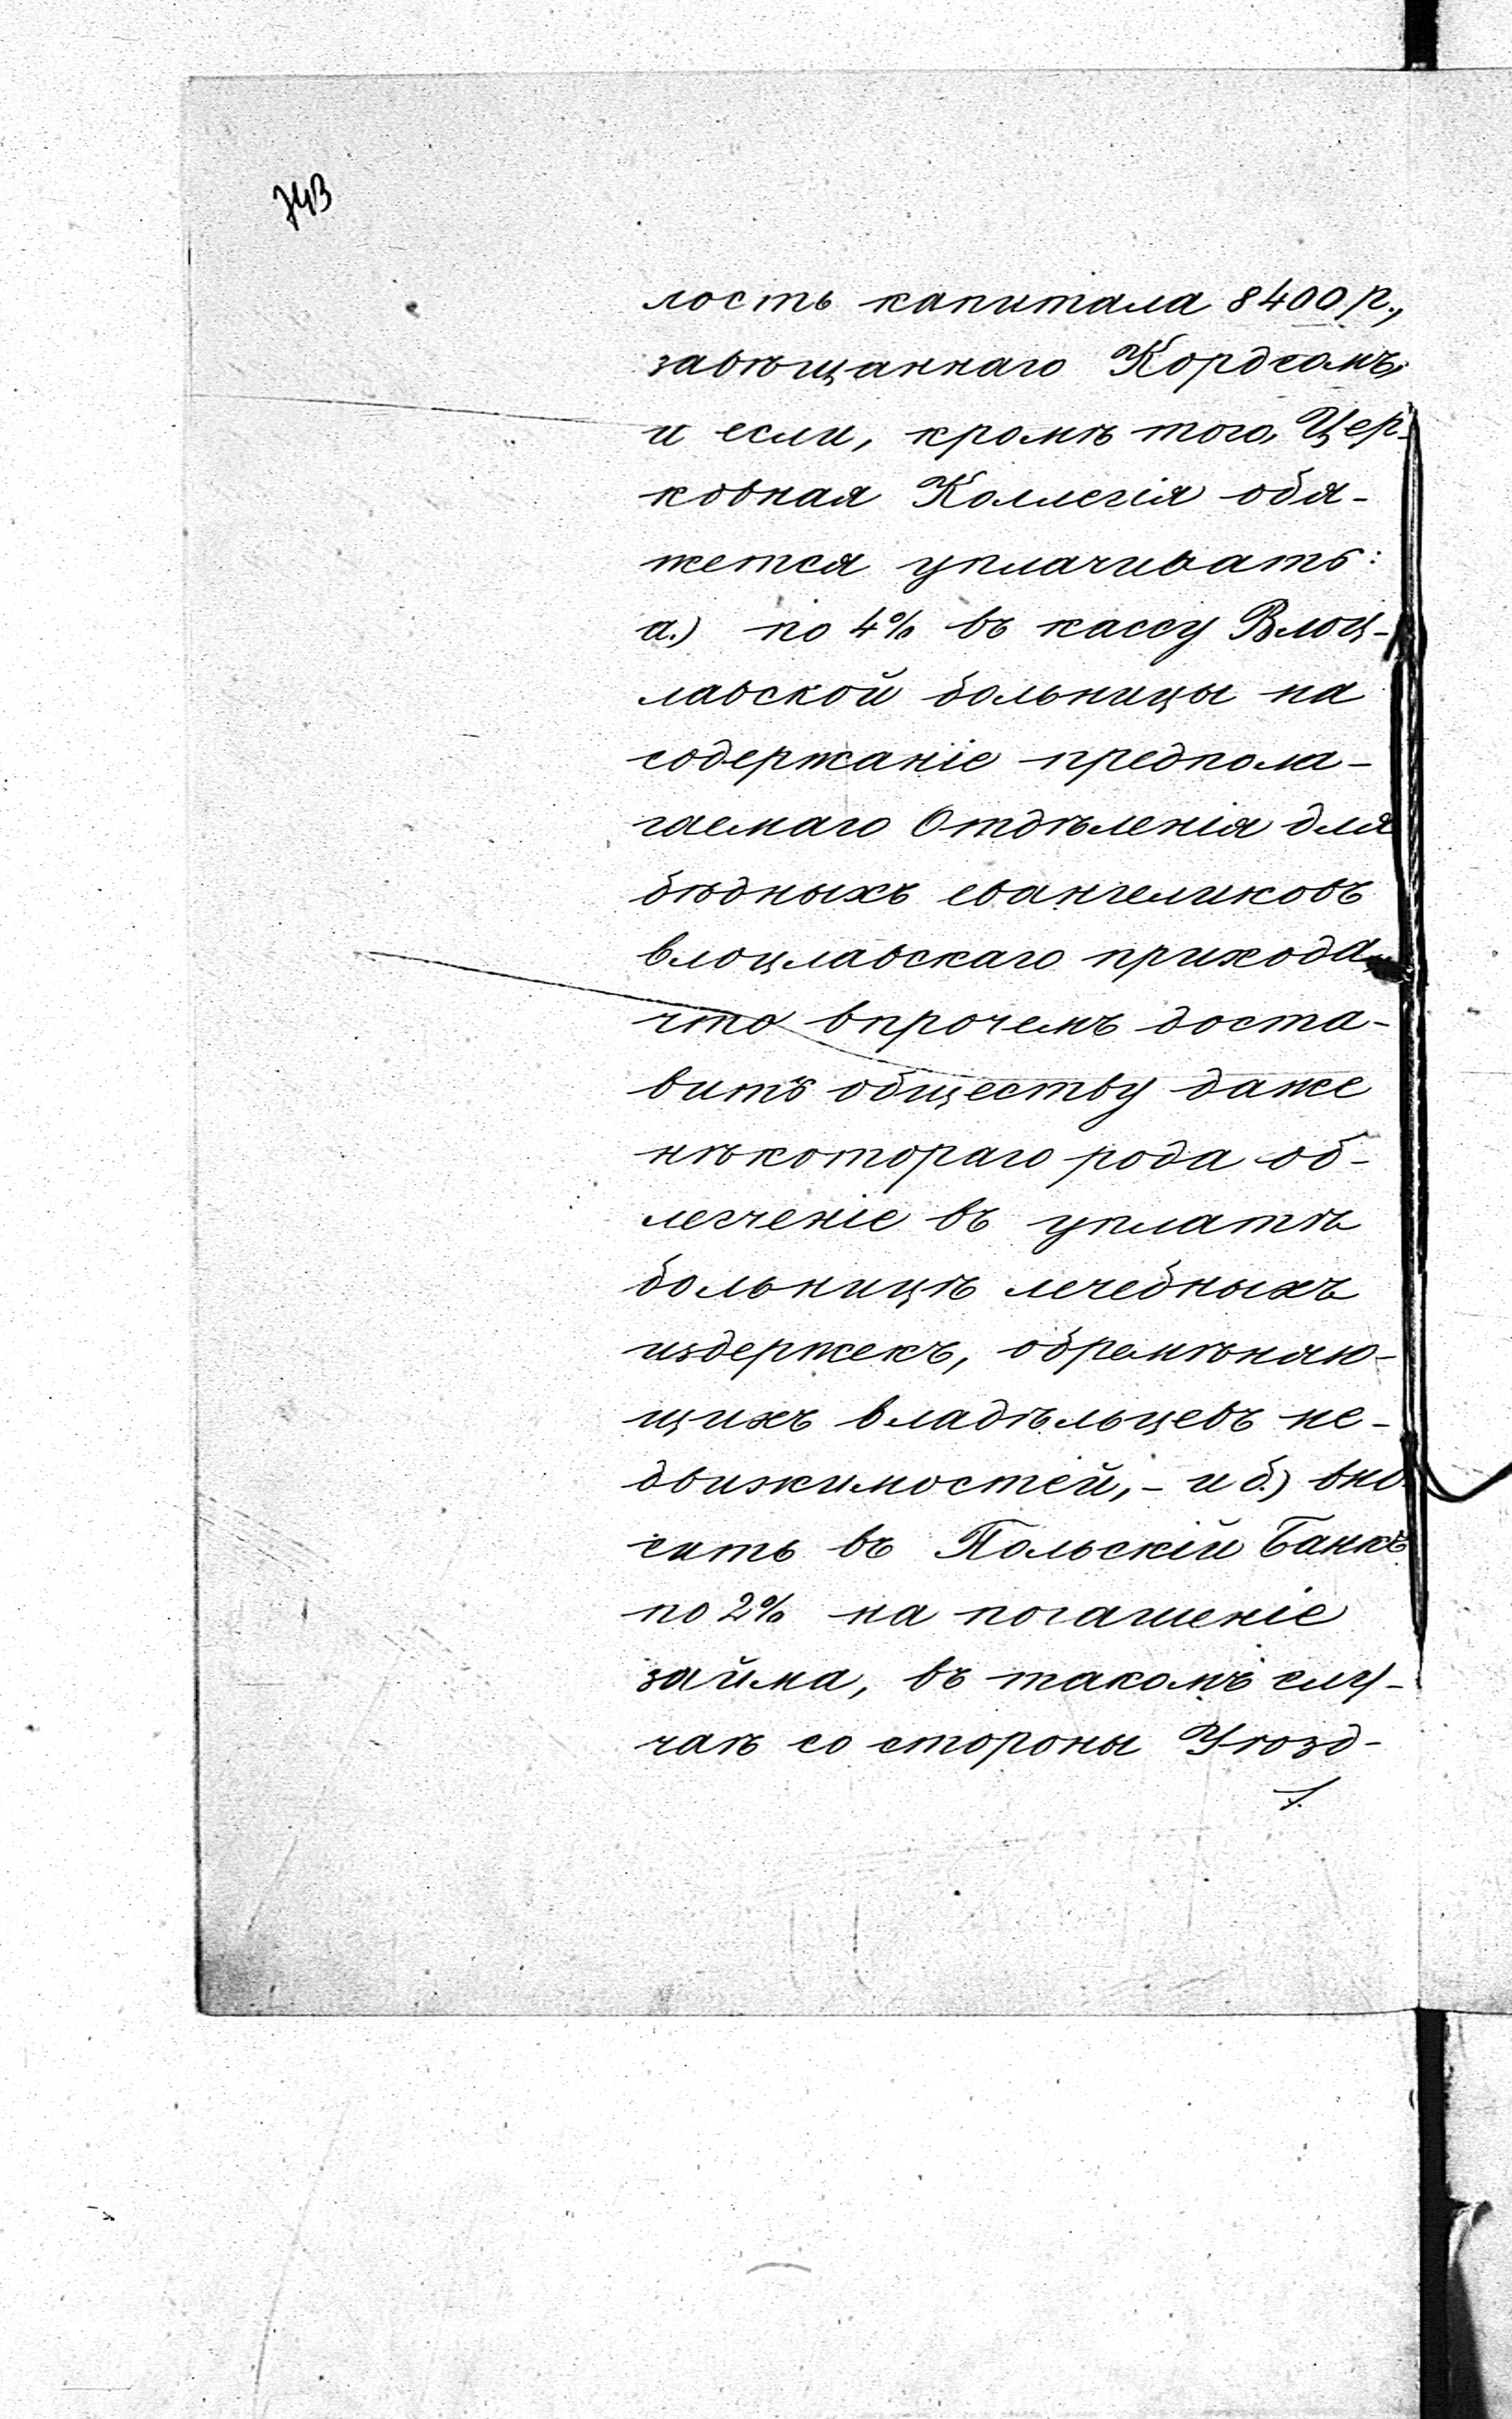 743
лость капитала 8400 р.,
завѣщаннаго Кордсомъ,
и если, кромѣ того, Цер-
ковная Коллегія обя-
жется уплачивать:
а.) по 4% въ кассу Влоц-
лавской больницы на
содержаніе предпола-
гаемаго Отдѣленія для
бѣдныхъ евангеликовъ
влоцлавскаго прихода,
что впрочемъ доста-
витъ обществу даже
нѣкотораго рода об-
легченіе въ уплатѣ
больницѣ лечебныхъ
издержекъ, обремѣняю-
щихъ владѣльцевъ не-
движимостей, - и б.) вно-
сить въ Польскій Банкъ
по 2% на погашеніе
займа, въ такомъ слу-
чаѣ со стороны Уѣзд-